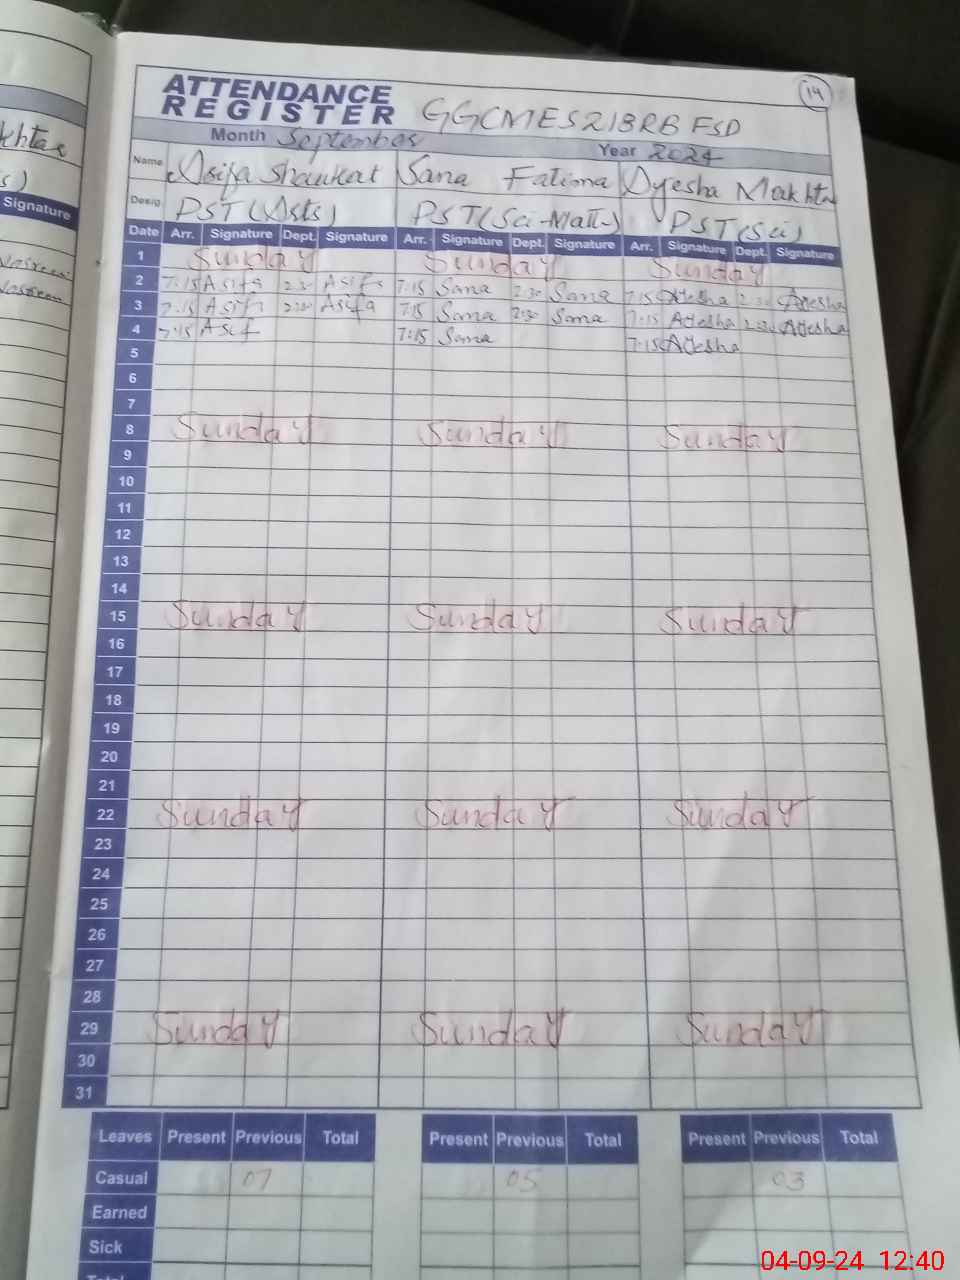 14
ATTENDANCE
REGISTER GGCMES 218RB FSD
Month September Year 2024
Name Asifa Shaukat Sana Fatima Ayesha Makhta
Desig PST (Arts) PST (Sci-Math) PST (Sci)
Signature
Date Arr. Signature Dept. Signature Arr. Signature Dept. Signature Arr. Signature Dept. Signature
1 Sunday Sunday Sunday
2 7:15 Asifa 2:30 Asifa 7:15 Sana 2:30 Sana 7:15 Ayesha 2:30 Ayesha
3 7:15 Asifa 2:30 Asifa 7:15 Sana 2:30 Sana 7:15 Ayesha 2:30 Ayesha
4 7:15 Asif 7:15 Sana 7:15 Ayesha
5
6
7
8 Sunday Sunday Sunday
9
10
11
12
13
14
15 Sunday Sunday Sunday
16
17
18
19
20
21
22 Sunday Sunday Sunday
23
24
25
26
27
28
29 Sunday Sunday Sunday
30
31
Leaves Present Previous Total Present Previous Total Present Previous Total
Casual 07 05 03
Earned
Sick
Total
04-09-24 12:40